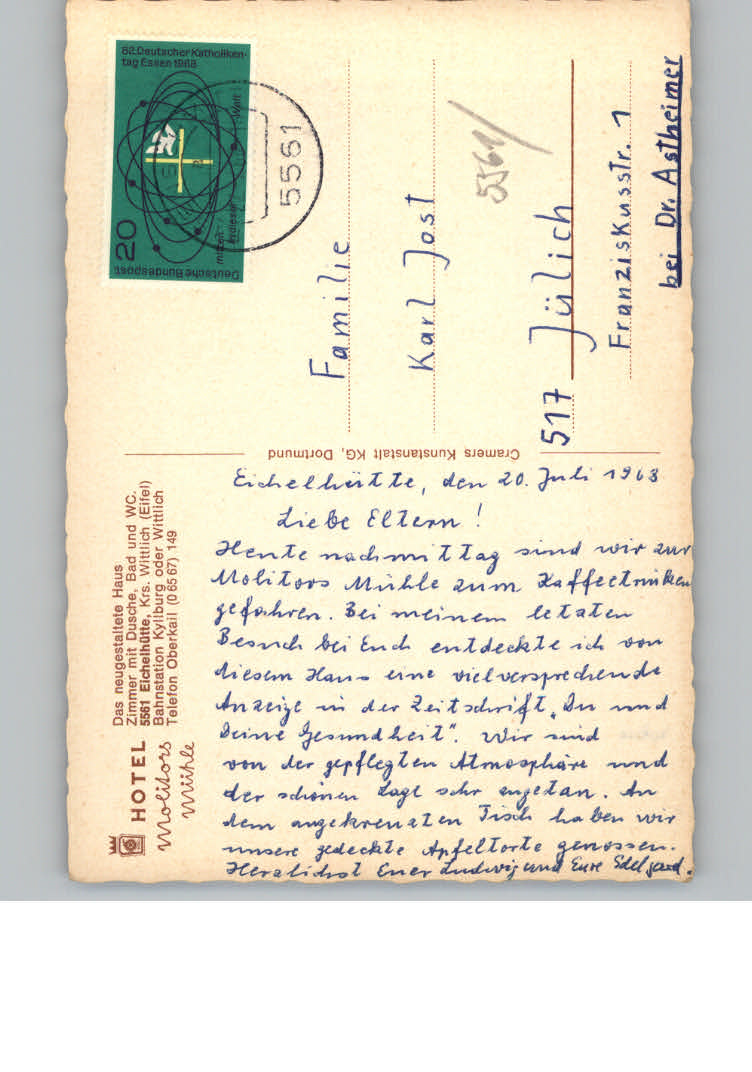 62. Deutscher Katholiken-
tag Essen 1968
20
Deutsche Bundespost
mitten
in dieser
Welt
5561
5561
Familie
Karl Jost
517 Jülich
Franziskusstr. 1
bei Dr. Astheimer
Cramers Kunstanstalt KG, Dortmund
HOTEL
Molitors
Mühle
Das neugestaltete Haus
Zimmer mit Dusche, Bad und WC.
5561 Eichelhütte, Krs. Wittlich (Eifel)
Bahnstation Kyllburg oder Wittlich
Telefon Oberkail (0 65 67) 149
Eichelhütte, den 20. Juli 1968
Liebe Eltern!
Heute nachmittag sind wir zur
Molitors Mühle zum Kaffeetrinken
gefahren. Bei meinem letzten
Besuch bei Euch entdeckte ich von
diesem Haus eine vielversprechende
Anzeige in der Zeitschrift „Du und
Deine Gesundheit". Wir sind
von der gepflegten Atmosphäre und
der schönen Lage sehr angetan. An
dem angekreuzten Tisch haben wir
unsere gedeckte Apfeltorte genossen.
Herzlichst Euer Ludwig und Eure Edelgard.